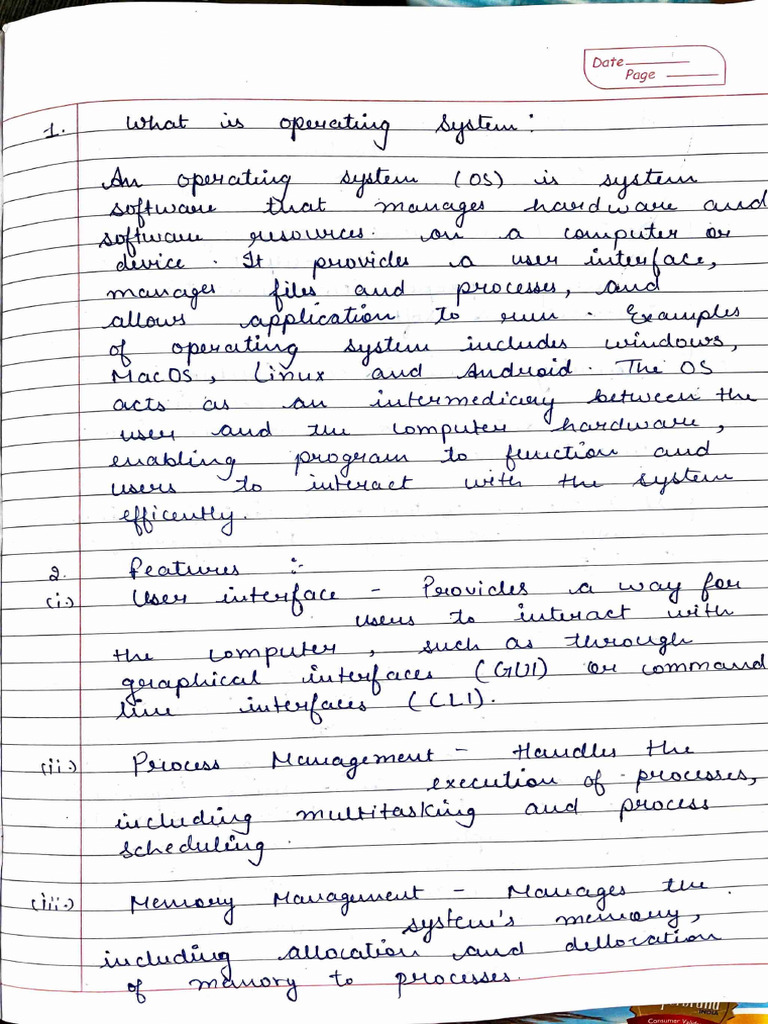 Date
Page
1. What is operating system:
An operating system (OS) is system
software that manages hardware and
software resources. on a computer or
device. It provides a user interface,
manages files and processes, and
allows application to run. Examples
of operating system includes windows,
MacOS, Linux and Android. The OS
acts as an intermediary between the
user and the computer hardware,
enabling program to function and
users to interact with the system
efficently.
2. Features :-
(i.) User interface - Provides a way for
users to interact with
the computer, such as through
graphical interfaces (GUI) or command
line interfaces (CLI).
(ii.) Process Management - Handles the
execution of processes,
including multitasking and process
scheduling.
(iii.) Memory Management - Manages the
system's memory,
including allocation and dellocation
of manory to processes.
INDIA